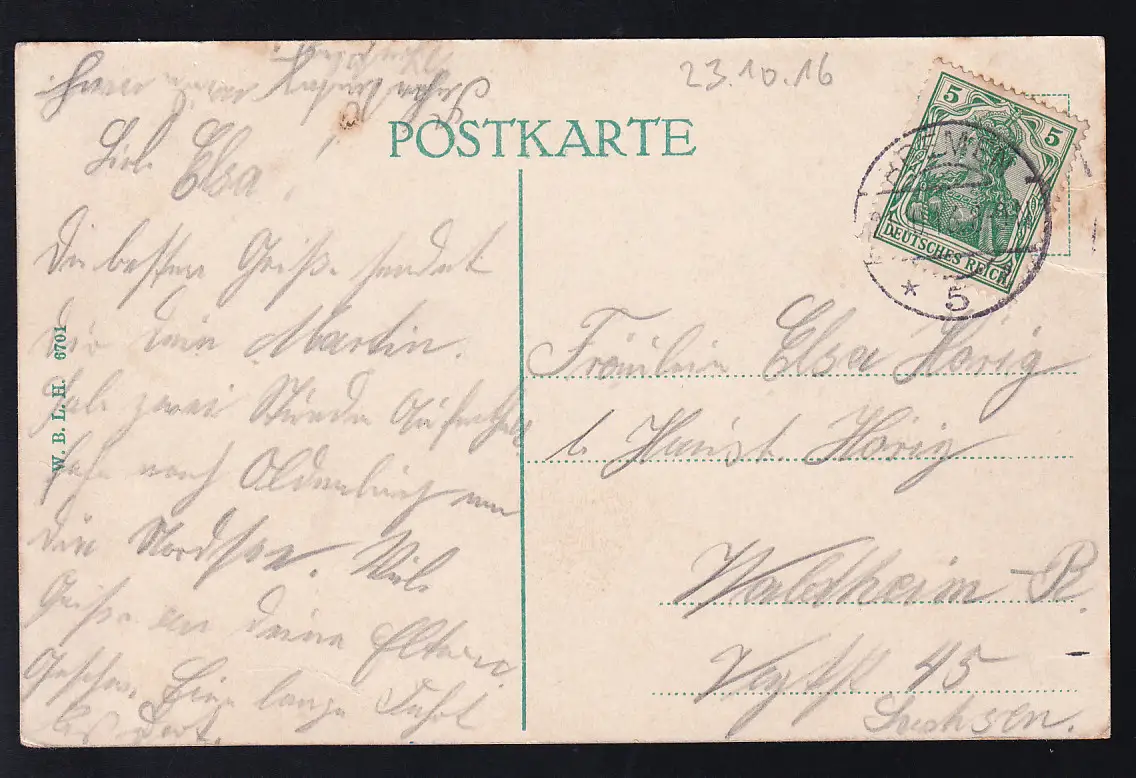 23.10.16
POSTKARTE
5 5
DEUTSCHES REICH
BREMEN
* 5
W. B. L. H. 6701
Elsa!
Die besten Grüße sendet
Dir Dein Martin.
Habe zwei Stunden Aufenthalt
fahre nach Oldenburg an
die Nordsee. Viele
Grüße an deine Eltern
lange Fahrt
Fräulein Elsa Hörig
b. Hörig
Waldheim-R.
45
Sachsen.